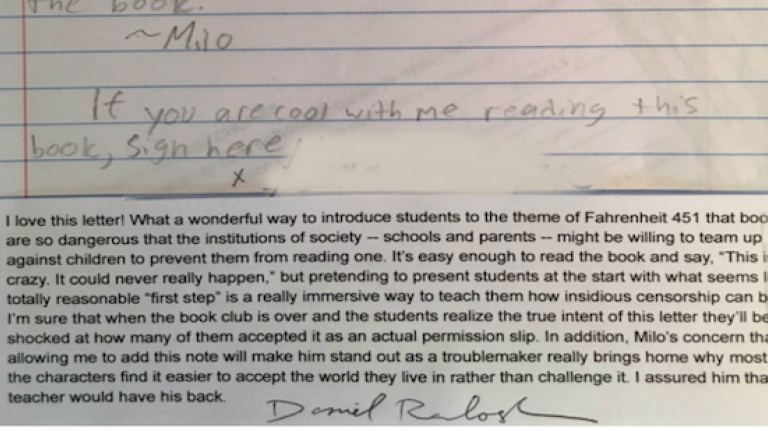 the book.
~Milo
If you are cool with me reading this
book, Sign here
x
I love this letter! What a wonderful way to introduce students to the theme of Fahrenheit 451 that boo
are so dangerous that the institutions of society -- schools and parents -- might be willing to team up
against children to prevent them from reading one. It's easy enough to read the book and say, "This i
crazy. It could never really happen," but pretending to present students at the start with what seems l
totally reasonable "first step" is a really immersive way to teach them how insidious censorship can b
I'm sure that when the book club is over and the students realize the true intent of this letter they'll be
shocked at how many of them accepted it as an actual permission slip. In addition, Milo's concern tha
allowing me to add this note will make him stand out as a troublemaker really brings home why most
the characters find it easier to accept the world they live in rather than challenge it. I assured him tha
teacher would have his back.
Daniel Radosh